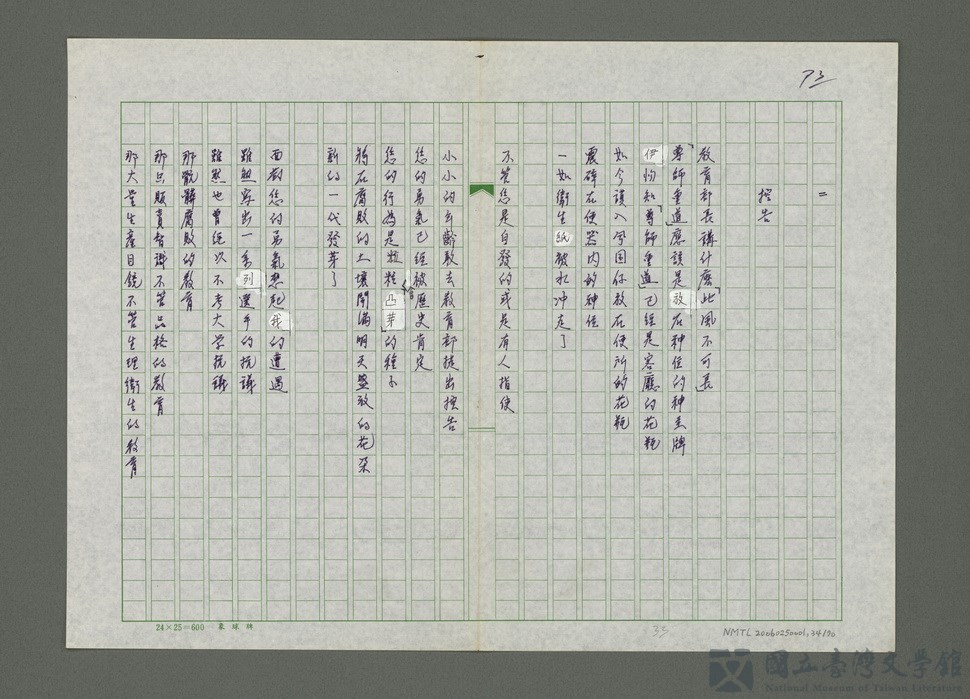 73
二
控告
教育部長講什麼「此風不可長
尊師重道」應該是放在神位的神主牌
伊的知「尊師重道」已經是客廳的花瓶
如今誤入 因你放在便所的花瓶
震碎在便器內的神位
一如衛生紙被水冲走了
不管您是自發的或是有人指使
小小的年齡敢去教育部提出控告
您的勇氣已經被歷史肯定
您的行為是粒粒會凸芽的種子
將在腐敗的土壤開滿明天盛放的花朵
新的一代發芽了
面對您的勇氣想起我的遭遇
雖然寫出一系列選手的抗議
雖然也曾經以不考大学抗議
那骯髒腐敗的教育
那只販賣智識不管品格的教育
那大量生產目鏡不管生理衛生的教育
24×25=600 象球牌
33
NMTL20060250001,34/90
國立臺灣文學館
National Museum of Taiwan Literature